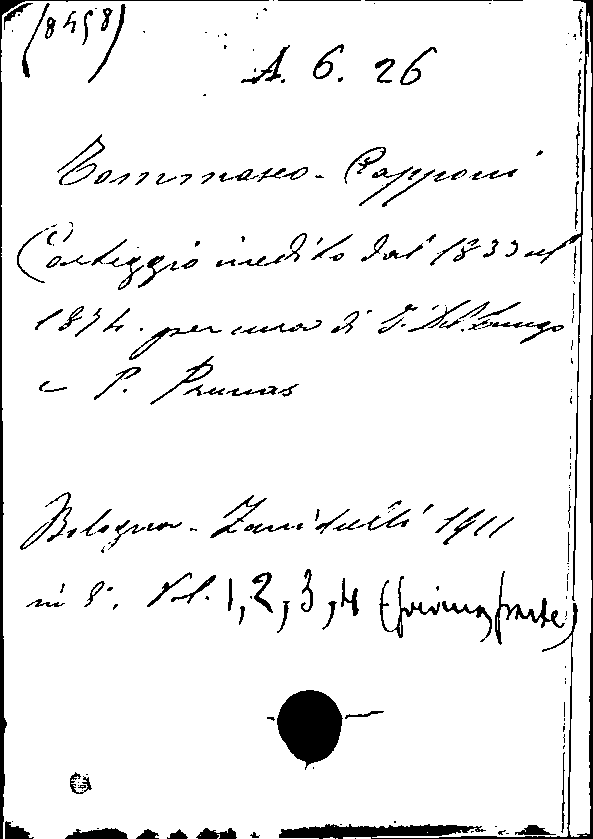 (8458)
A. 6. 26
Tommaseo - Capponi
Carteggio inedito dal 1833 al
1874. per cura di I. Del Lungo
e P. Prunas
Bologna - Zanichelli 1911
in 8°. Vol. 1, 2, 3, 4 (prima parte)